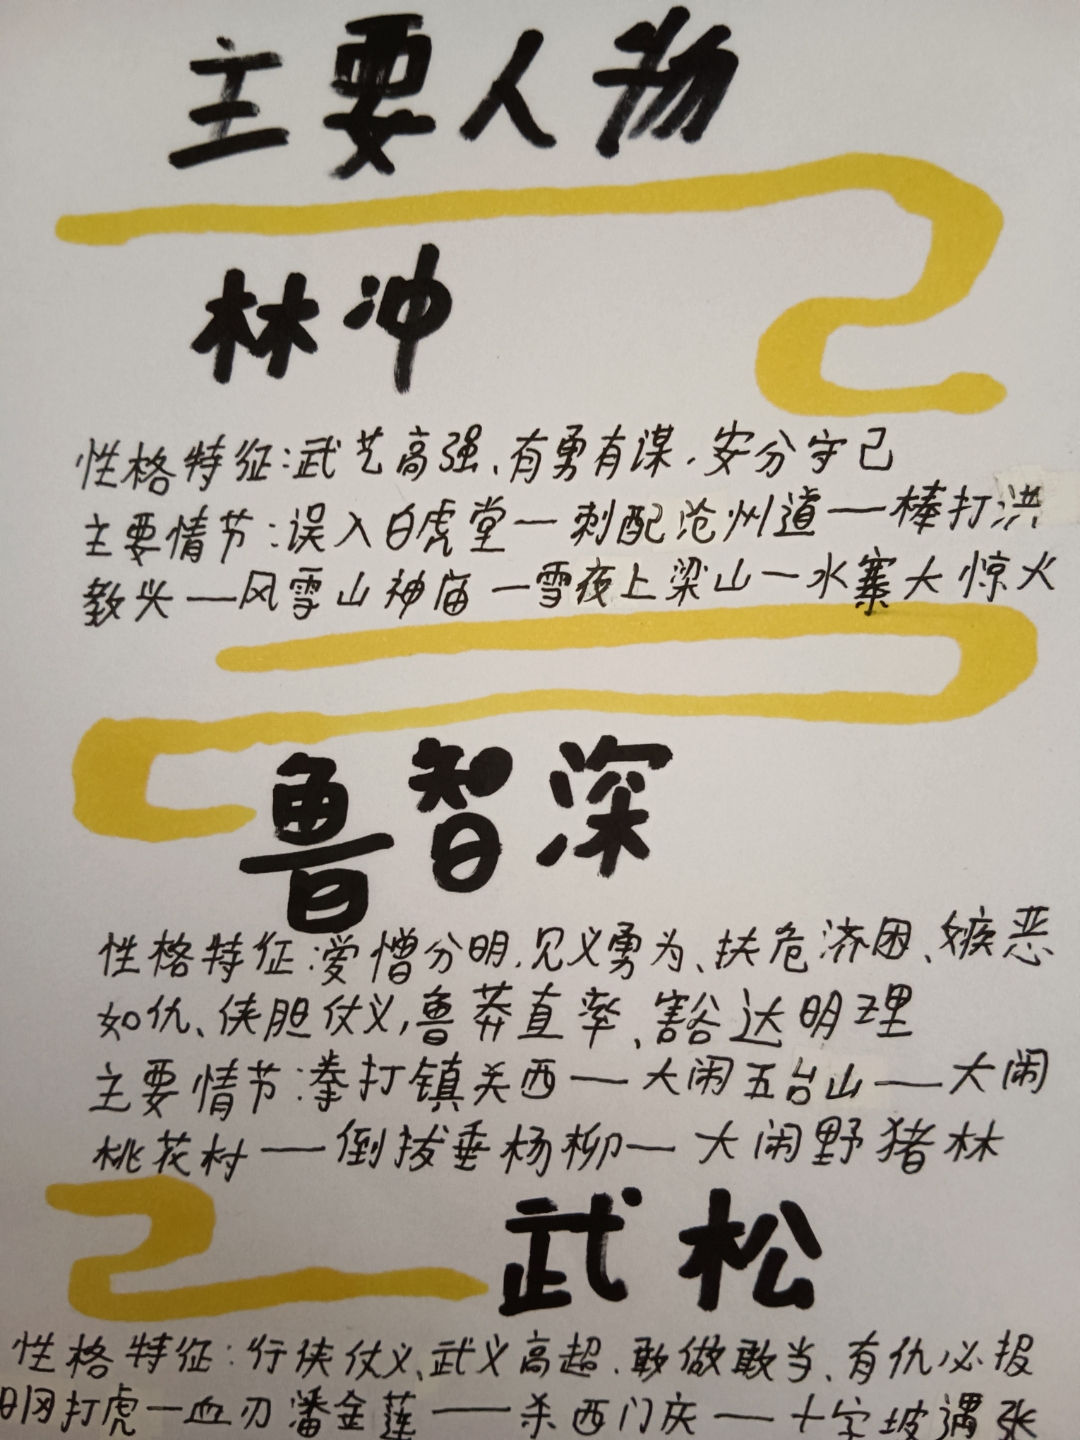 主要人物
林冲
性格特征:武艺高强、有勇有谋、安分守己
主要情节:误入白虎堂一刺配沧州道一一棒打洪
教头一一风雪山神庙一雪夜上梁山一水寨大惊火
鲁智深
性格特征:爱憎分明、见义勇为、扶危济困、嫉恶
如仇、侠胆仗义,鲁莽直率、豁达明理
主要情节:拳打镇关西一一大闹五台山一一大闹
桃花村一一倒拔垂杨柳一大闹野猪林
武松
性格特征:行侠仗义、武义高超、敢做敢当、有仇必报
打虎一血刃潘金莲一一杀西门庆一十字坡遇张